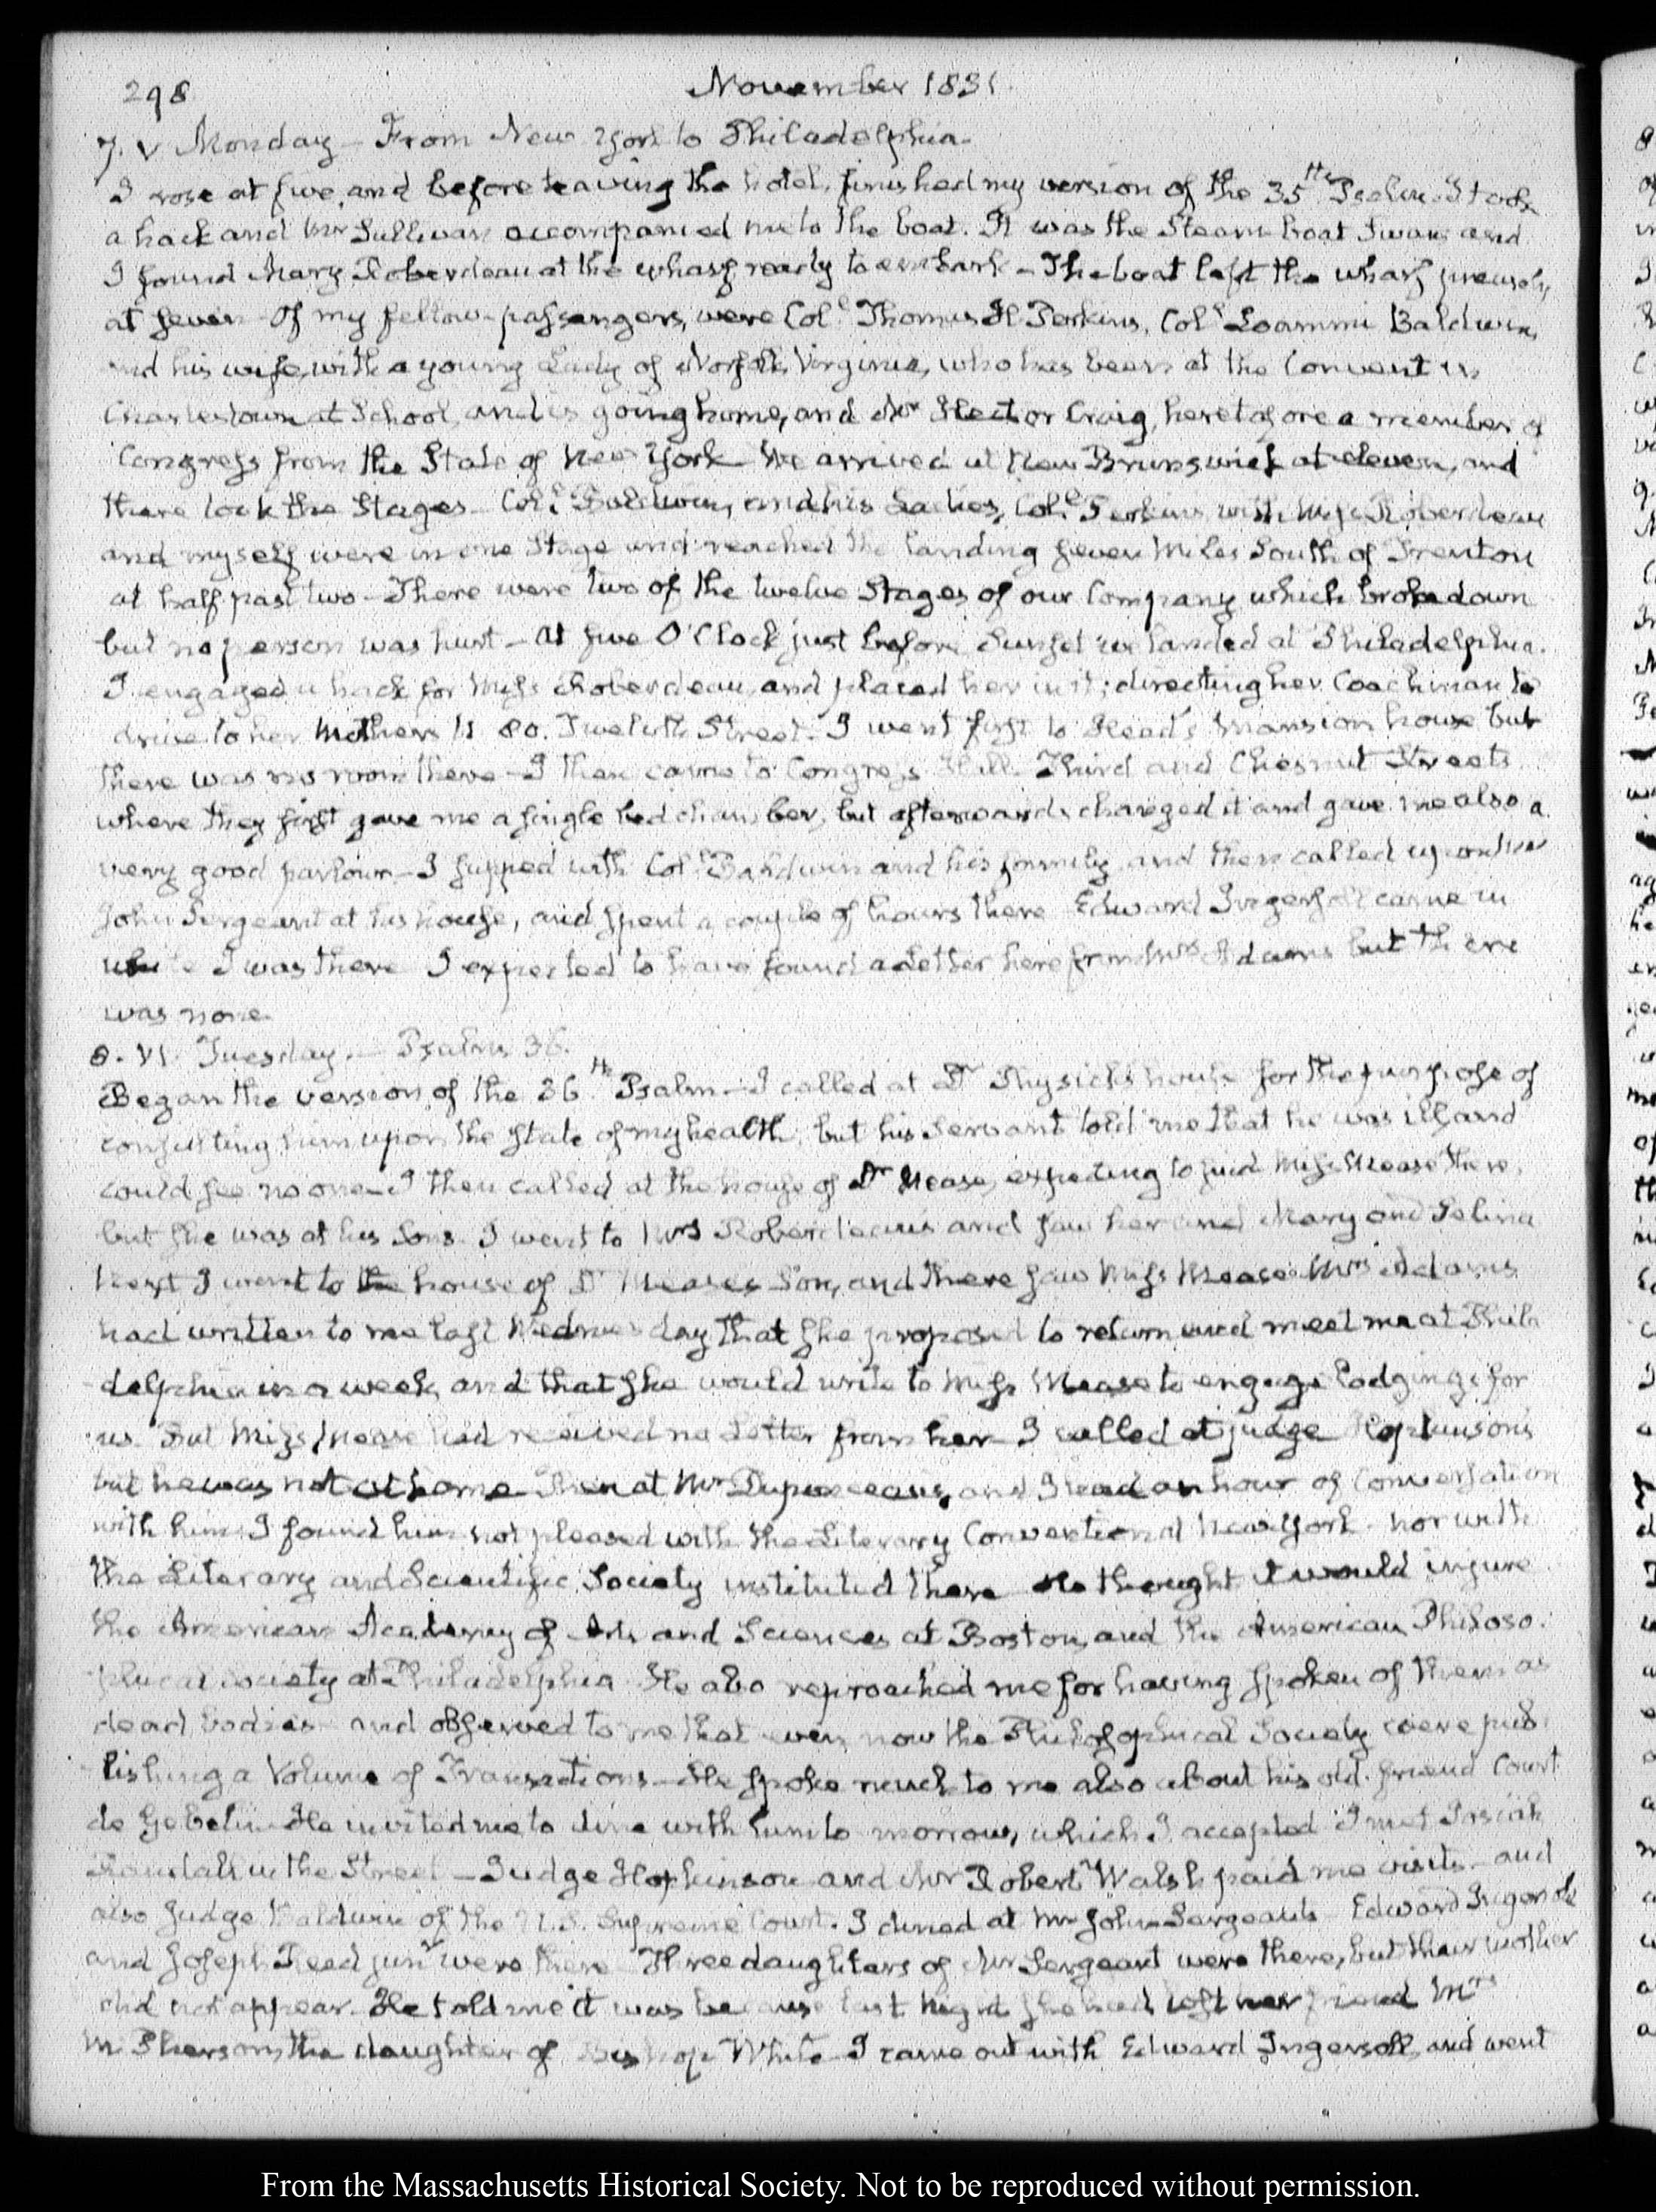 298
November 1831.
7. V. Monday — From New York to Philadelphia.
I rose at five, and before leaving the hotel, finished my version of the 35th Psalm. I took
a hack and Mr Sullivan accompanied me to the boat. It was the Steam-boat Swan and
I found Mary Roberdeau at the wharf ready to embark — The boat left the wharf precisely
at seven — Of my fellow-passengers, were Coll. Thomas H Perkins, Coll. Loammi Baldwin,
and his wife, with a young Lady of Norfolk Virginia, who has been at the Convent in
Charlestown at School, and is going home, and Mr Hector Craig, heretofore a member of
Congress from the State of New York — We arrived at New Brunswick at eleven, and
there took the Stages — Coll. Baldwin, and his Ladies, Coll. Perkins with Miss Roberdeau
and myself were in one Stage and reached the landing seven Miles South of Trenton
at half past two — There were two of the twelve Stages of our Company which broke down
but no person was hurt — At five O'Clock just before Sunset we landed at Philadelphia.
I engaged a hack for Miss Roberdeau and placed her in it; directing her Coachman to
drive to her Mothers N. 80. Twelfth Street. I went first to Head's Mansion house but
there was no room there — I then came to Congress Hall Third and Chesnut Streets
where they first gave me a single bed chamber, but afterwards changed it and gave me also a
very good parlour — I supped with Coll. Baldwin and his family and then called upon Mr
John Sergeant at his house, and spent a couple of hours there Edward Ingersoll came in
while I was there I expected to have found a Letter here from Mrs Adams but there
was none.
8. VI. Tuesday. — Psalm 36.
Began the version of the 36th Psalm — I called at Dr Physick's house for the purpose of
consulting him upon the state of my health, but his Servant told me that he was ill and
could see no one — I then called at the house of Dr Mease, expecting to find Miss Mease there,
but she was at his Sons. I went to Mrs Roberdeau's and saw her and Mary and Selina
Next I went to the house of Dr Mease's Son, and there saw Miss Mease. Mrs Adams
had written to me last Wednesday that she proposed to return and meet me at Phila
delphia in a week, and that she would write to Miss Mease to engage Lodgings for
us. But Miss Mease had received no Letter from her — I called at judge Hopkinson's
but he was not at home. Then at Mr Duponceau's, and I had an hour of Conversation
with him. I found him not pleased with the Literary Convention at New York. nor with
the Literary and Scientific Society instituted there He thought it would injure
the American Academy of Arts and Sciences at Boston, and the American Philoso-
phical Society at Philadelphia He also reproached me for having spoken of them as
dead bodies — and observed to me that even now the Philosophical Society were pub-
lishing a Volume of Transactions — He spoke much to me also about his old friend Court
de Gebelin — He invited me to dine with him to morrow, which I accepted I met Josiah
Randall in the Street — Judge Hopkinson and Mr Robert Walsh paid me visits — and
also Judge Baldwin of the U.S. Supreme Court. I dined at Mr John Sergeants — Edward Ingersoll
and Joseph Reed junr were there Three daughters of Mr Sergeant were there, but their mother
did not appear. He told me it was because last Night she had lost her friend Mrs
McPherson, the daughter of Bishop White — I came out with Edward Ingersoll, and went
From the Massachusetts Historical Society. Not to be reproduced without permission.